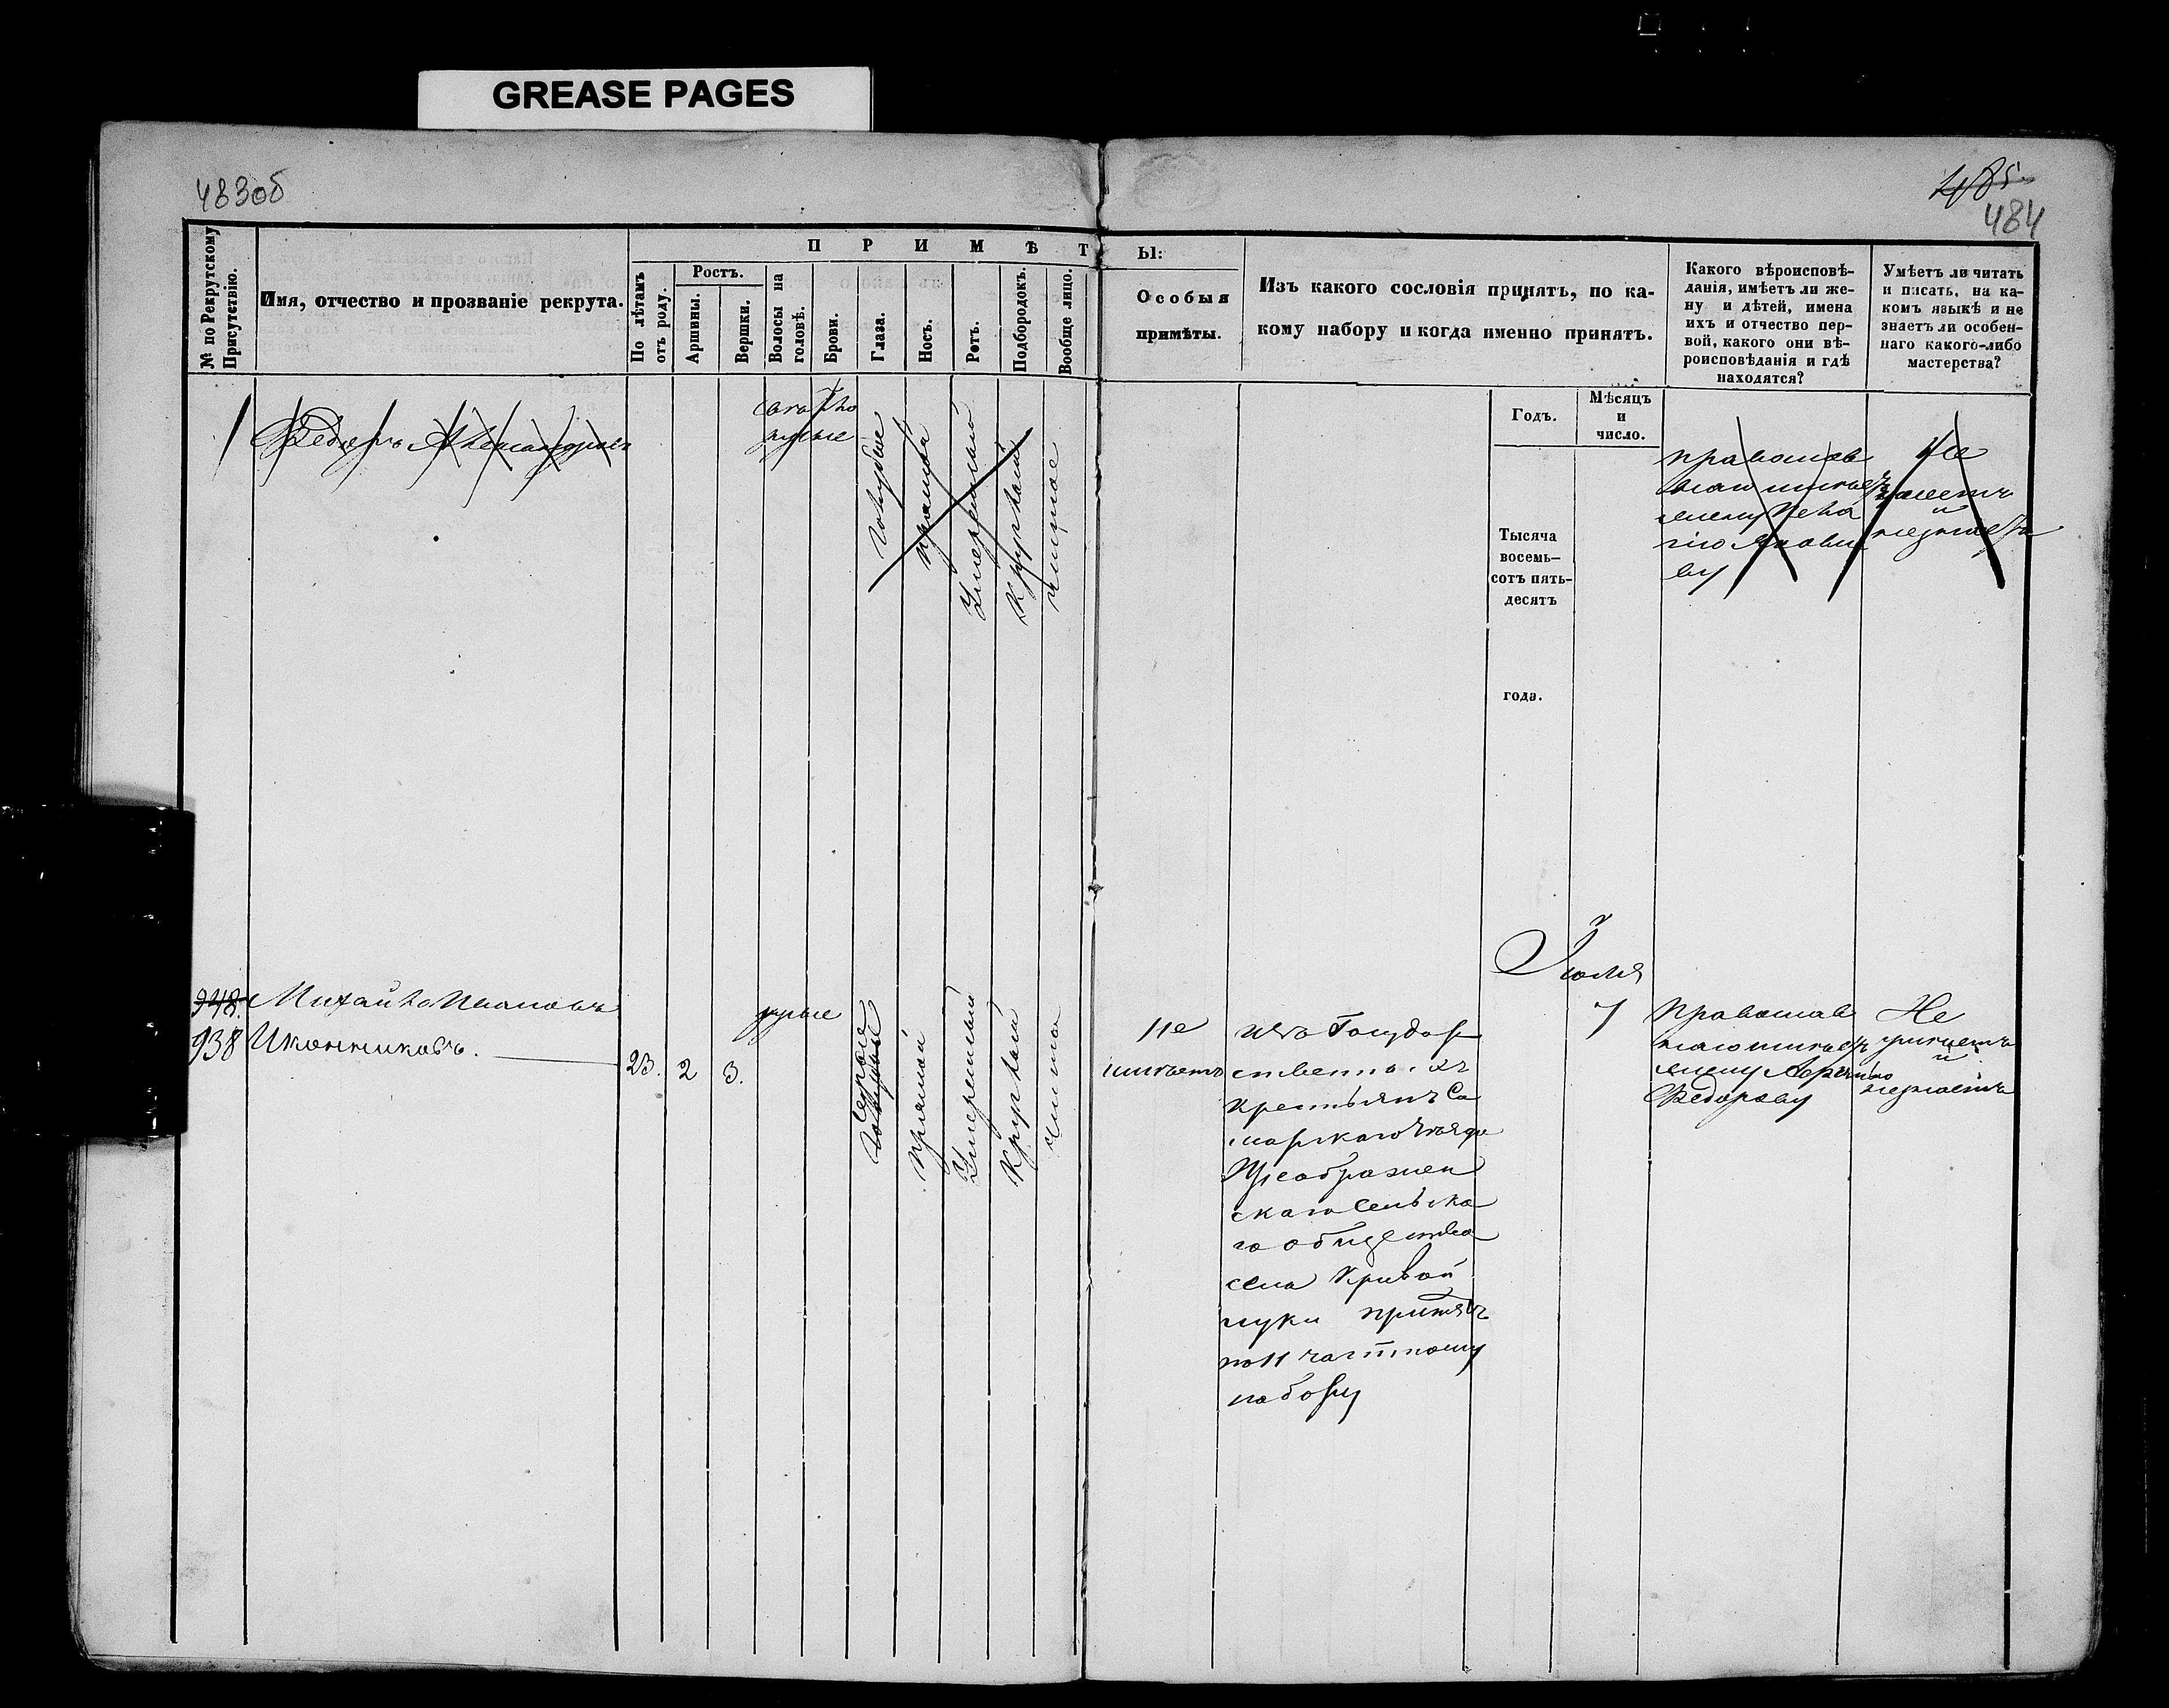 GREASE PAGES
483об
485.
484
№ по Рекрутскому
Присутствію.
Имя, отчество и прозваніе рекрута.
ПРИМѢТЫ:
По лѣтамъ
отъ роду.
Ростъ.
Аршины.
Вершки.
Волосы на
головѣ.
Брови.
Глаза.
Носъ.
Ротъ.
Подбородокъ.
Вообще лицо.
Особыя
примѣты.
Изъ какого сословія принятъ, по ка-
кому набору и когда именно принятъ.
Какого вѣроисповѣ-
данія, имѣетъ ли же-
ну и дѣтей, имена
ихъ и отчество пер-
вой, какого они вѣ-
роисповѣданія и гдѣ
находятся?
Умѣетъ ли читать
и писать, на ка-
комъ языкѣ и не
знаетъ ли особен-
наго какого-либо
мастерства?
Годъ.
Мѣсяцъ
и
число.
Тысяча
восемь-
сотъ пять-
десятъ
года.
Ѳедоръ Александровъ
свѣтло
русые
голубые
прямой
Умеренный
Круглый
чистое
православ
жену
Не
и
незнаетъ
948.
938
Михайло Ивановъ
Иконниковъ.
23.
2
3.
русые
серые
голубые
прямой
Умеренный
Круглый
чисто
Не
имѣетъ
изъ Государ
ственныхъ
крестьянъ Са
марскаго уѣзда
Преображен
скаго сельска
го общества
села Кривой
луки принятъ
по 11 частному
набору
Іюля
7
Православ
наго имѣетъ
жену
Ѳедорову
Не
умѣетъ
и
незнаетъ